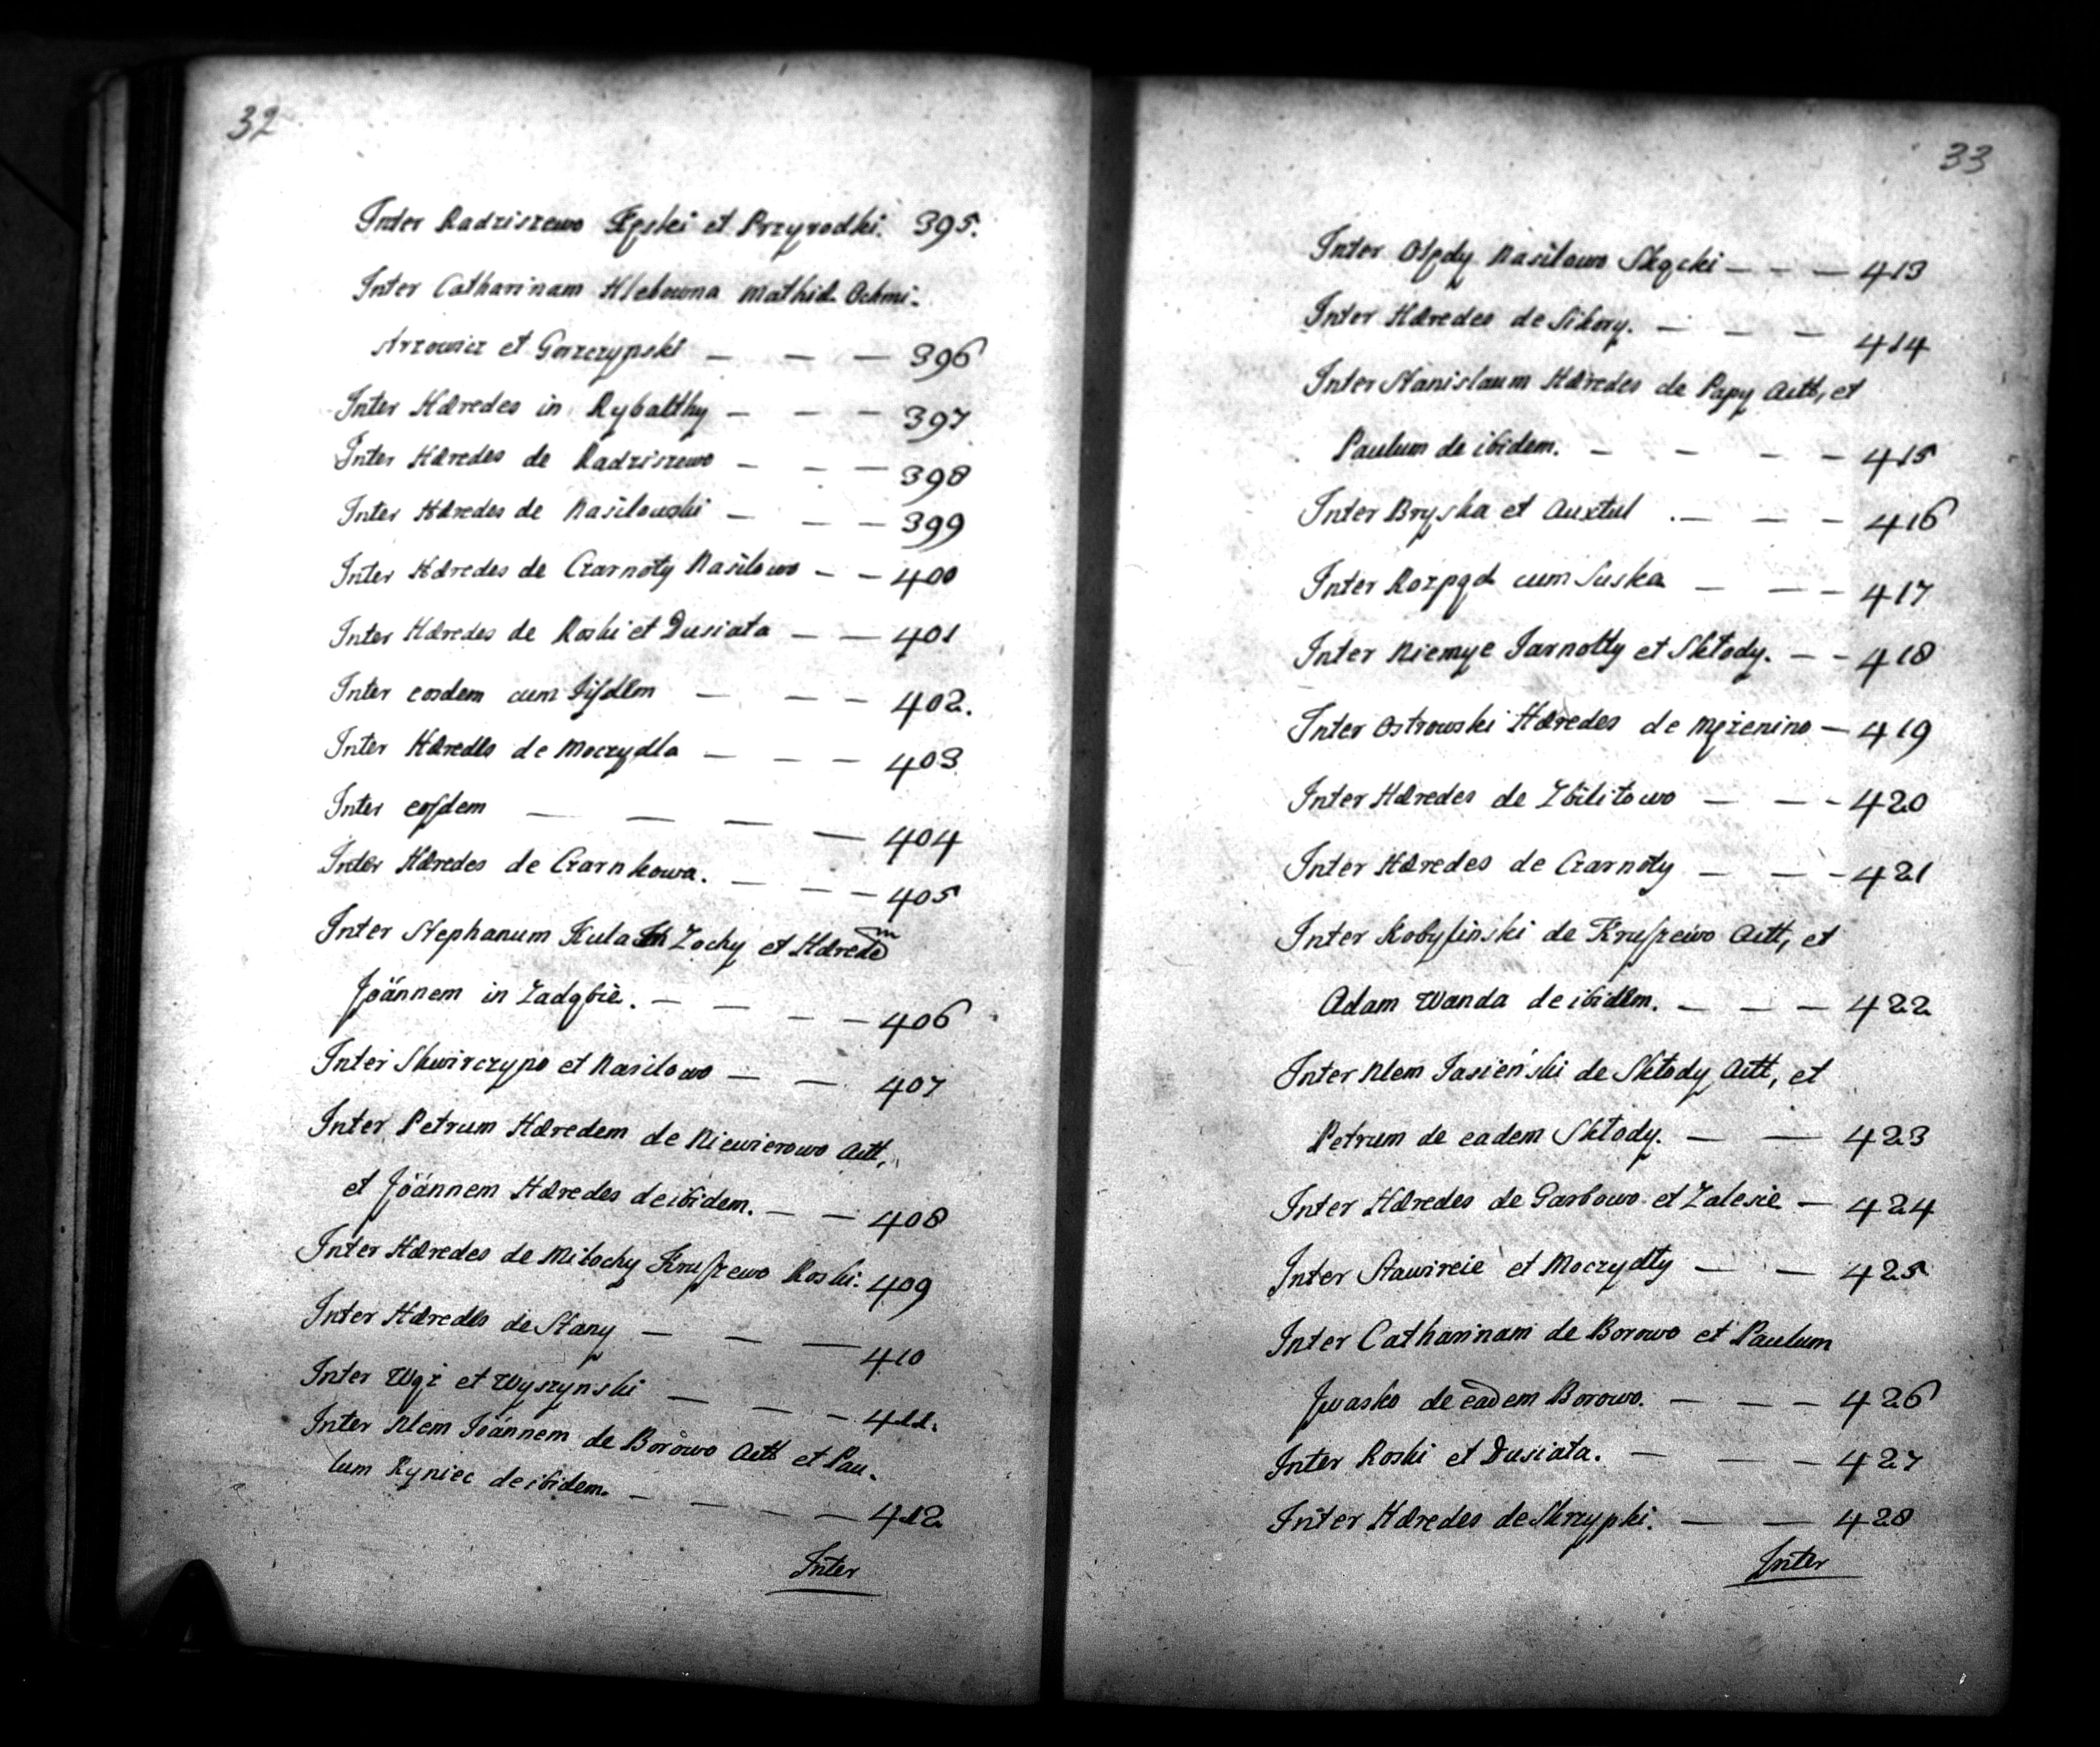 32
Inter Radziszewo Sępski et Przyrodki. 395.
Inter Catharinam Hlebowna Mathid. Ochmi-
strzowicz et Gorzczypski — — — 396
Inter Hæredes in Rybalthy — — — 397
Inter Hæredes de Radziszewo — — — 398
Inter Hæredes de Nasilowski — — — 399
Inter Hæredes de Czarnoty Nasilowo — — 400
Inter Hæredes de Roski et Dusiata — — 401
Inter eosdem cum iisdem — — — 402.
Inter Hæredes de Moczydla — — — 403
Inter eosdem — — — — 404
Inter Hæredes de Czarnkowa. — — — 405
Inter Stephanum Kula Zochy et Hæredem
Joánnem in Zadąbie. — — — — 406
Inter Skwirczypo et Nasilowo — — 407
Inter Petrum Hæredem de Niewierowo Actt,
et Joánnem Hæredes de ibidem. — — 408
Inter Hæredes de Miłochy Kruszewo Roski. 409
Inter Hæredes de Stany — — — 410
Inter Wąż et Wyszynski — — — 411.
Inter Nlem Joánnem de Borowo Actt et Pau-
lum Kyniec de ibidem. — — — — 412
Inter
33
Inter Osędy Nasilowo Skącki — — — 413
Inter Hæredes de Sikory. — — — 414
Inter Stanislaum Hæredes de Papy Actt, et
Paulum de ibidem. — — — — 415
Inter Bryska et Auxtul — — — 416
Inter Rozpąd cum Suska — — — 417
Inter Niemye Jarnolty et Skłody. — — 418
Inter Ostrowski Hæredes de Mężenino — 419
Inter Hæredes de Zbilitowo — — — 420
Inter Hæredes de Czarnoty — — — 421
Inter Kobysinski de Kruszewo Actt, et
Adam Wanda de ibidem. — — — 422
Inter Nlem Jasieński de Skłody Actt, et
Petrum de eadem Skłody. — — 423
Inter Hæredes de Garbowo et Zalesie — 424
Inter Stawireie et Moczydły — — 425
Inter Catharinam de Borowo et Paulum
Jwasko de eadem Borowo. — — — 426
Inter Roski et Dusiata. — — — 427
Inter Hæredes de Skrzypki. — — 428
Inter